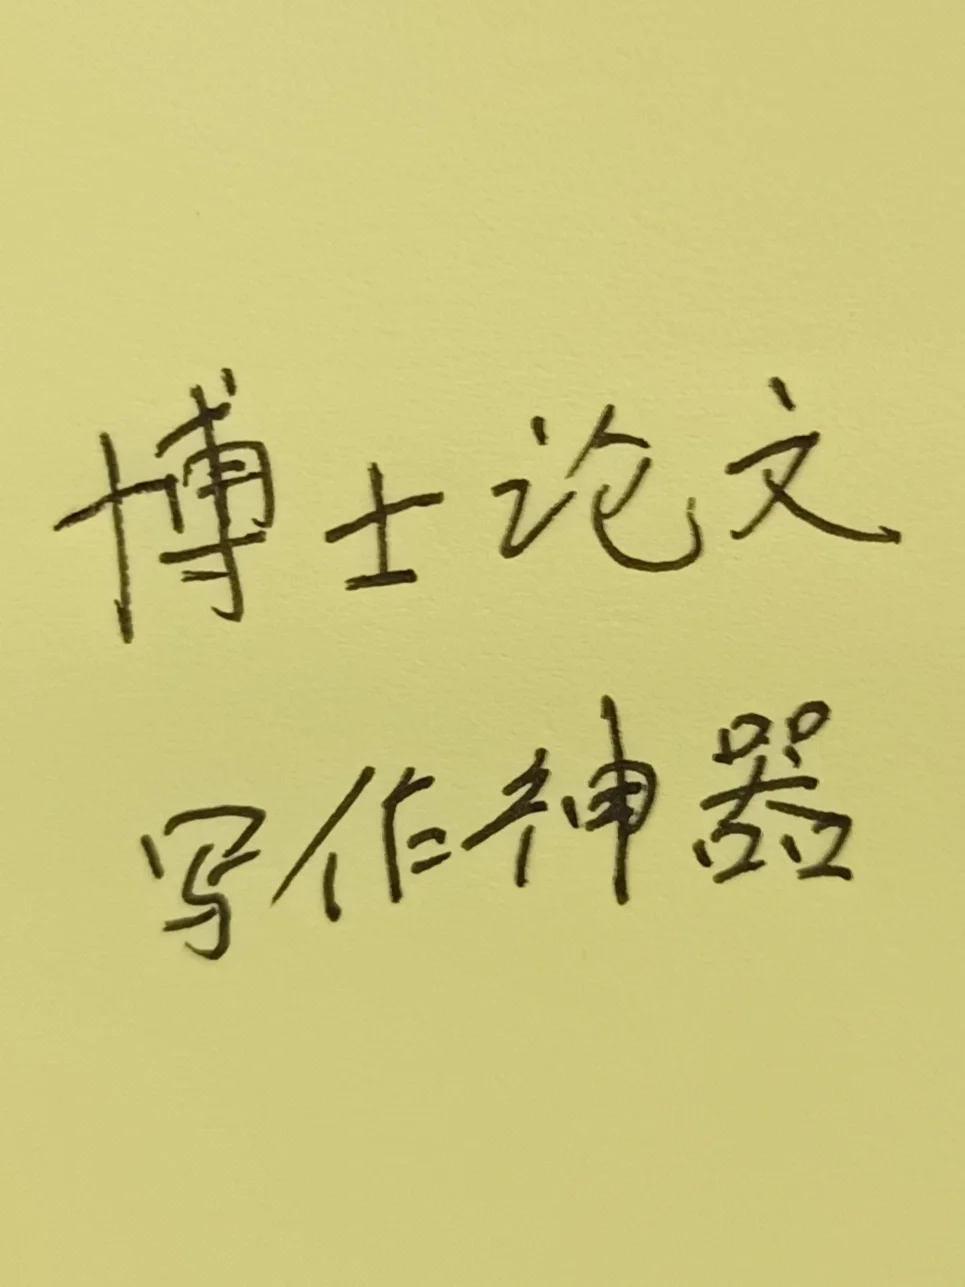 博士论文
写作神器